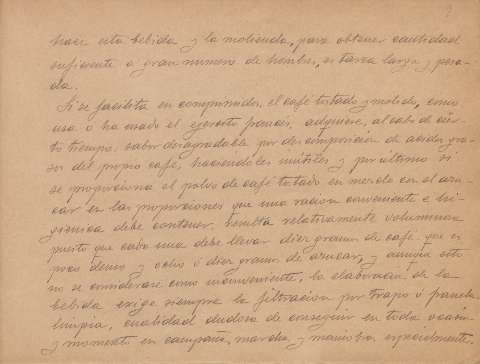 hacer esta bebida y la molienda, para obtener cantidad
suficiente a gran numero de hombres, es tarea larga y pesa-
da.
Si se facilita en comprimidos, el café tostado y molido, como
usa ó ha usado el ejercito francés, adquiere, al cabo de cier-
to tiempo, sabor desagradable por descomposicion de acidos gra-
sos del propio café, haciendoles inútiles y por ultimo si
se proporciona el polvo de café tostado en mezcla con el azu-
car en las proporciones que una racion conveniente e hi-
gienica debe contener, resulta relativamente voluminosa
puesto que cada una debe llevar diez gramos de café que es
poco denso y ocho ó diez gramos de azucar, y aunque esto
no se considerase como inconveniente, la elaboracion de la
bebida exige siempre la filtracion por trapo ó franela
limpia, cualidad dudosa de conseguir en toda ocasion
y momento en campaña, marcha y maniobra especialmente.